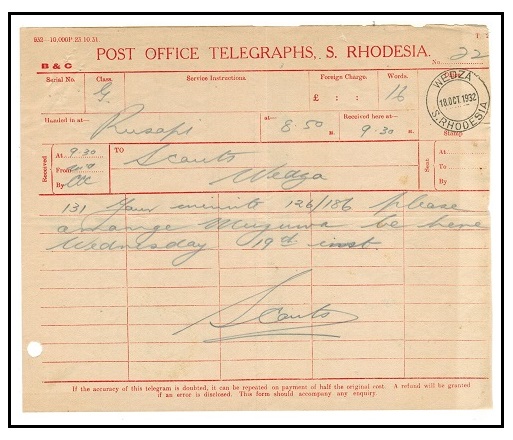 952—10,000P. 23.10.31.
POST OFFICE TELEGRAPHS, S. RHODESIA.
B & C
No. 22
Serial No. Class. Service Instructions. Foreign Charge. Words.
G. £ : : 16
WEDZA
18.OCT.1932
S.RHODESIA
Handed in at— Rusapi at— 8.50 M. Received here at— 9.30 M.
Stamp
Received
At 9.30
From
By
TO Scouts
Wedza
Sent
At
To
By
131 Your minute 126/186 please
arrange be here
Wednesday 19th inst.
Scouts
If the accuracy of this telegram is doubted, it can be repeated on payment of half the original cost. A refund will be granted
if an error is disclosed. This form should accompany any enquiry.